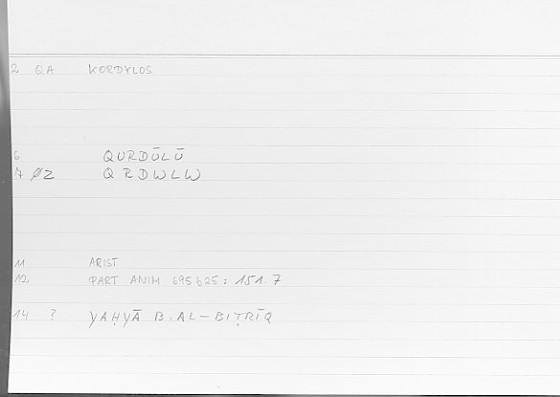 2 QA KORDYLOS
6 QURDŪLŪ
7 ØZ QRDWLW
11 ARIST
12 PART ANIM 695b25: 151.7
14 ? YAḤYĀ B. AL-BIṬRĪQ